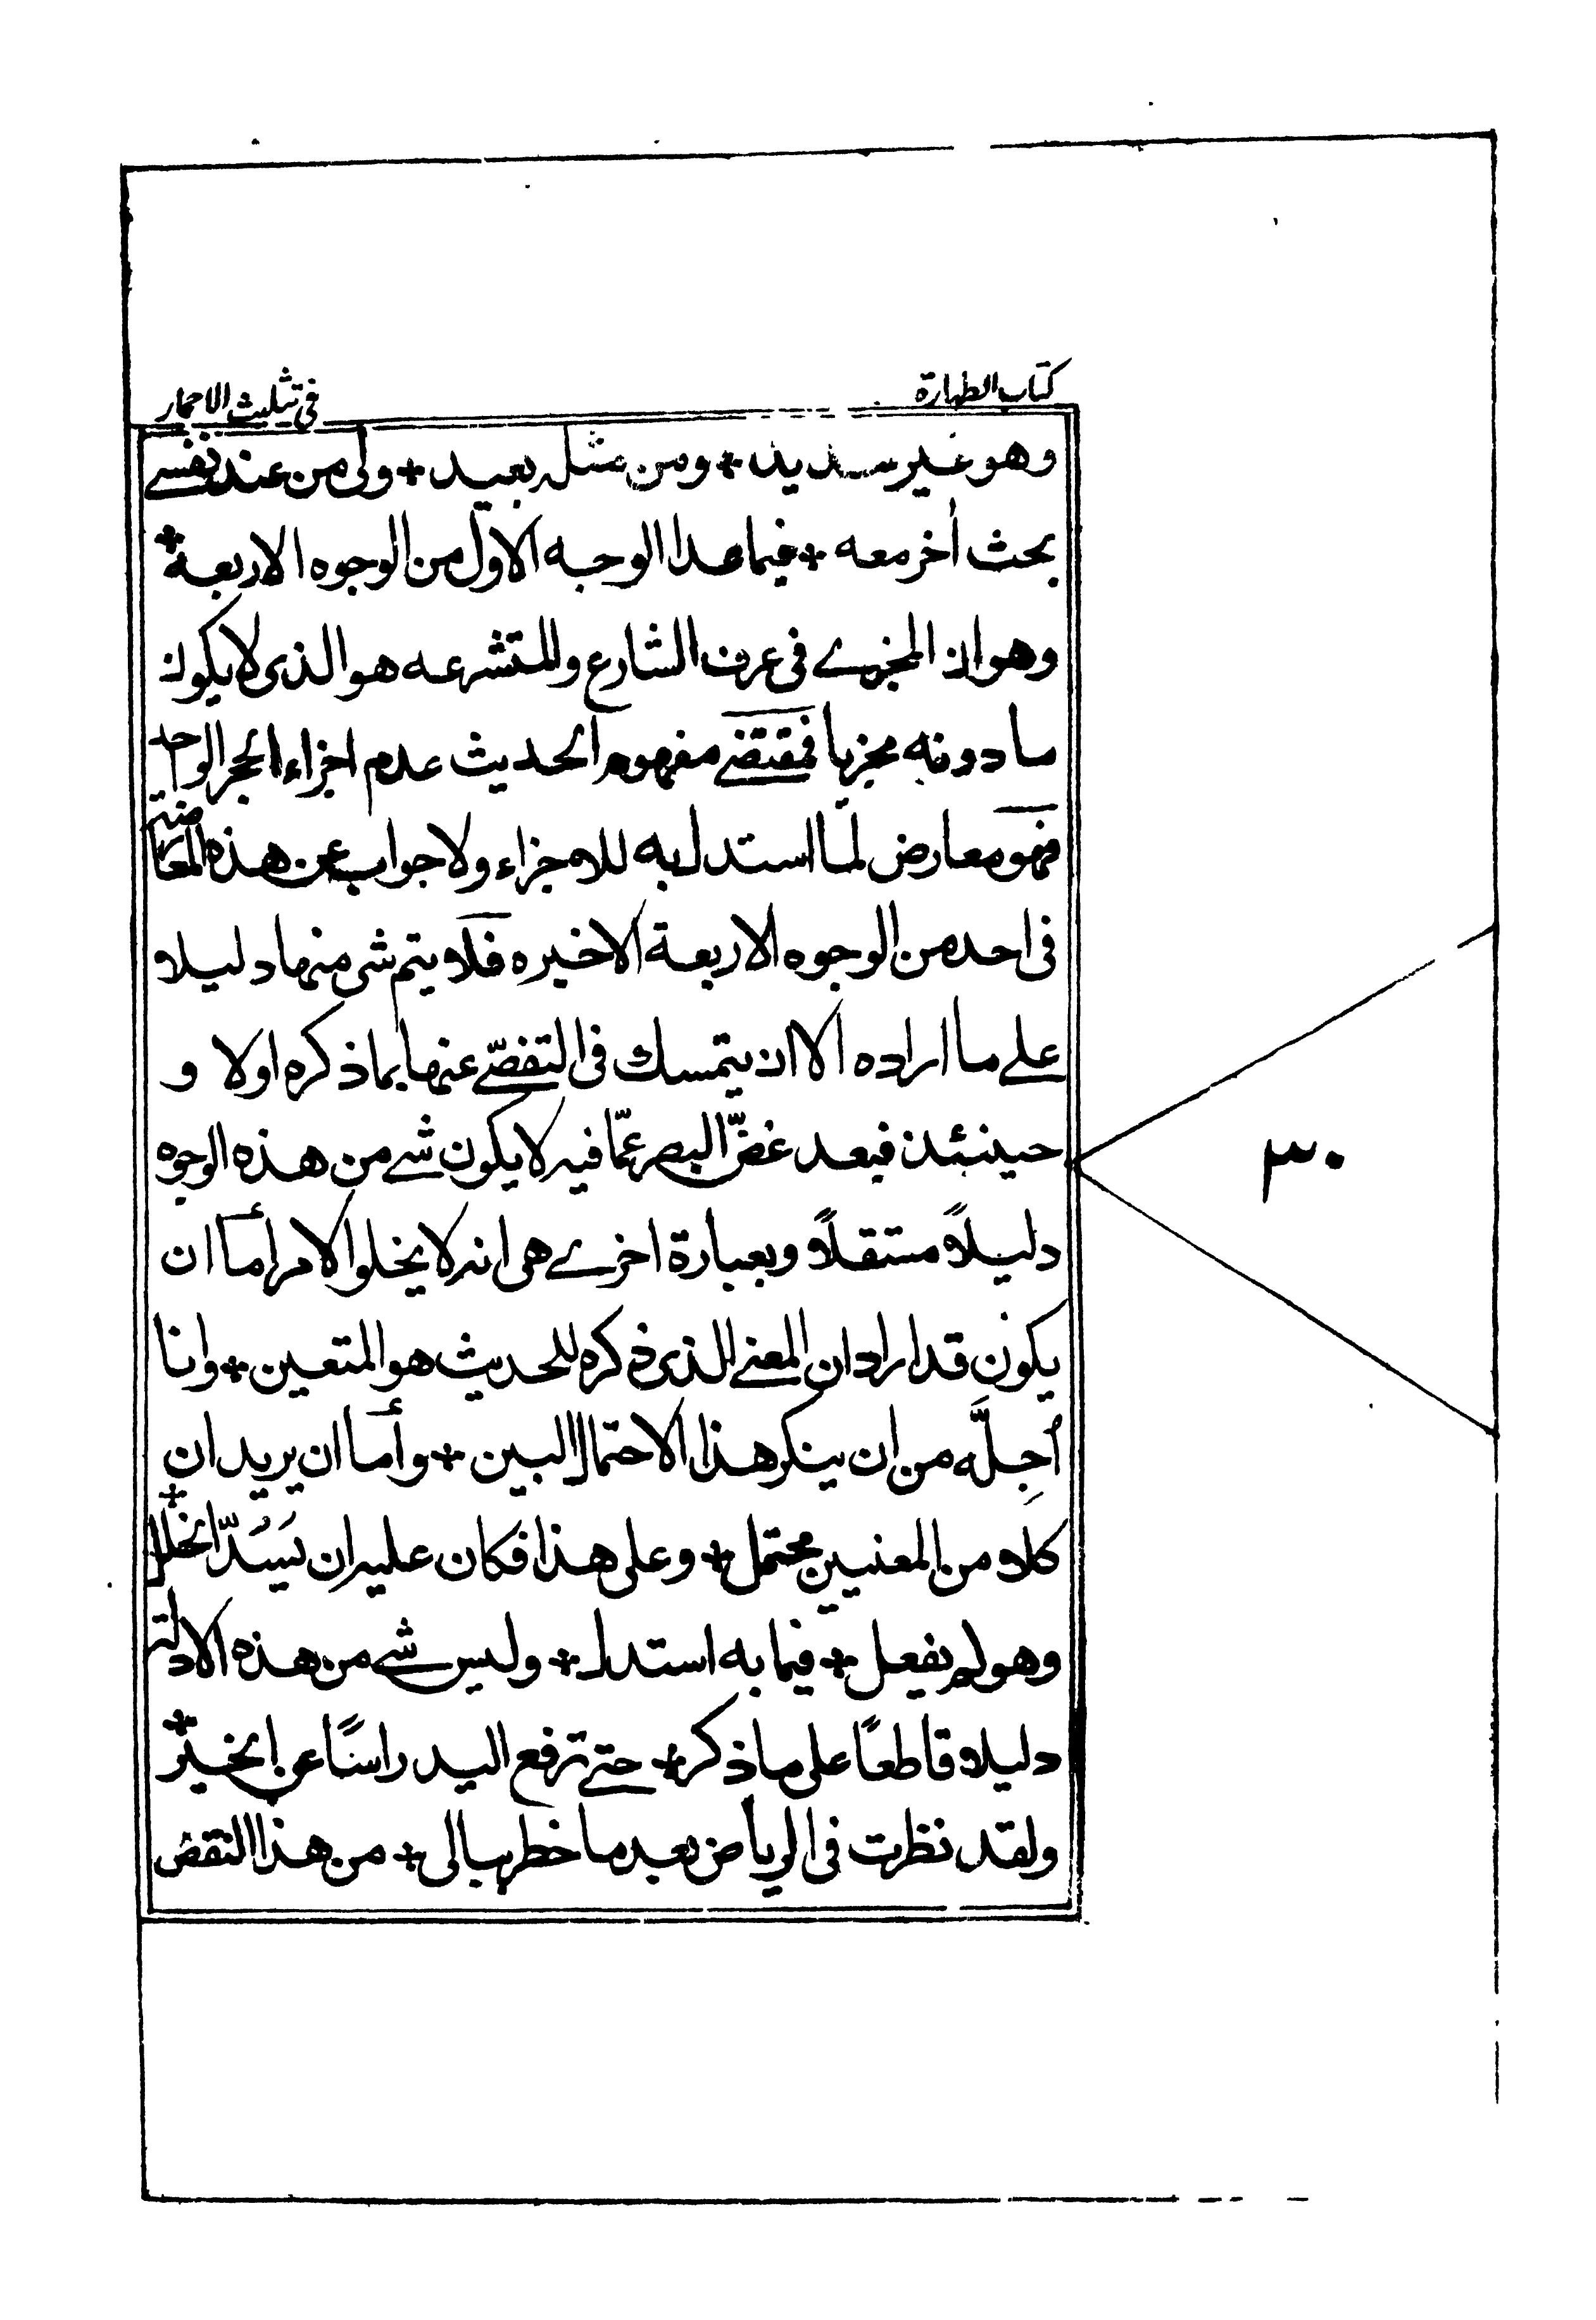 كتاب الطهارة
في تثليث الاحجار
وهو غير سديد + ومن مثله بعيد + ولي من عند نفسے
بحث أخر معه + فيما عدا الوجه الاول من الوجوه الاربعة +
وهو ان المجزے في عرف الشارع والمتشرعه هو الذي لا يكون
ما دونه مجزيا فمقتضے مفهوم الحديث عدم اجزاء الحجر الواحد
فهو معارض لما استدل به للاجزاء ولا جواب عن هذه المعارضة
في احد من الوجوه الاربعة الاخيره فلا يتم شي منها دليلا
علے ما اراده الا ان يتمسك في التفصّے عنها بما ذكره اولا و
حينئذ فبعد غضّ البصر عمّا فيه لا يكون شے من هذه الوجوه
دليلاً مستقلاً وبعبارة اخرے هي انه لا يخلو الامر أما ان
يكون قد اراد ان المعنے الذي ذكره للحديث هو المتعين + وانا
أُجِلَّه من ان ينكر هذا الاحتمال البين + وأما ان يريد ان
كلا من المعنيين محتمل + وعلى هذا فكان عليه ان يَسُدّ الخلل +
وهو لم يفعل + فيما به استدل + وليس شے من هذه الادلة
دليلا قاطعًا على ما ذكر + حتے ترفع اليد راسًا عن الخبر +
ولقد نظرت في الرياض بعد ما خطر ببالي + من هذا النقض
٣٠